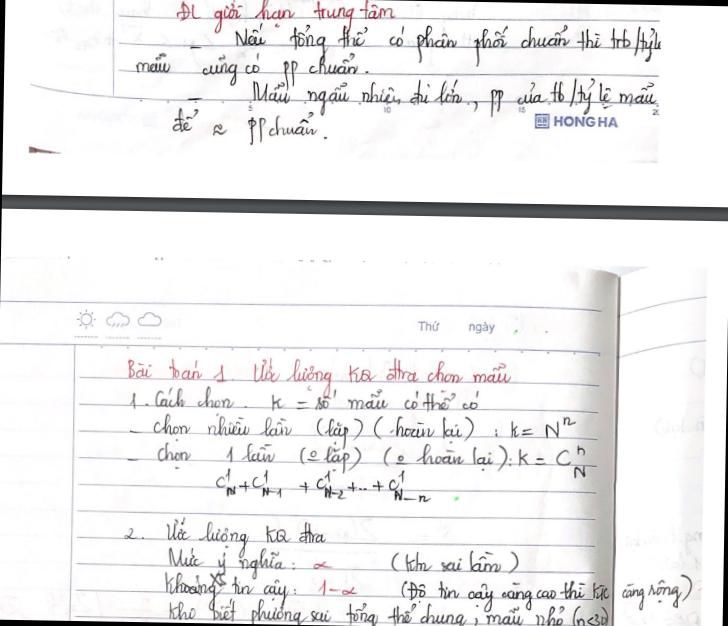 ĐL giới hạn trung tâm
_ Nếu tổng thể có phân phối chuẩn thì trb/tỷ lệ
mẫu cũng có pp chuẩn.
_ Mẫu ngẫu nhiên, đủ lớn, pp của tb/tỷ lệ mẫu
để ≈ pp chuẩn.
5 10 15 20
HONG HA
Thứ ngày
Bài toán 1. Ước lượng KQ đtra chọn mẫu
1. Cách chọn. K = số mẫu có thể có
_ chọn nhiều lần (lặp) (hoàn lại) : k = Nⁿ
_ chọn 1 lần (o lặp) (o hoàn lại): K = Cⁿ_N
C¹_N + C¹_N-1 + C¹_N-2 + ... + C¹_N-n
2. Ước lượng KQ đtra
Mức ý nghĩa: α (sai lầm)
Khoảng XS tin cậy: 1-α (Độ tin cậy càng cao thì càng rộng)
Khó biết phương sai tổng thể chung, mẫu nhỏ (n<30)